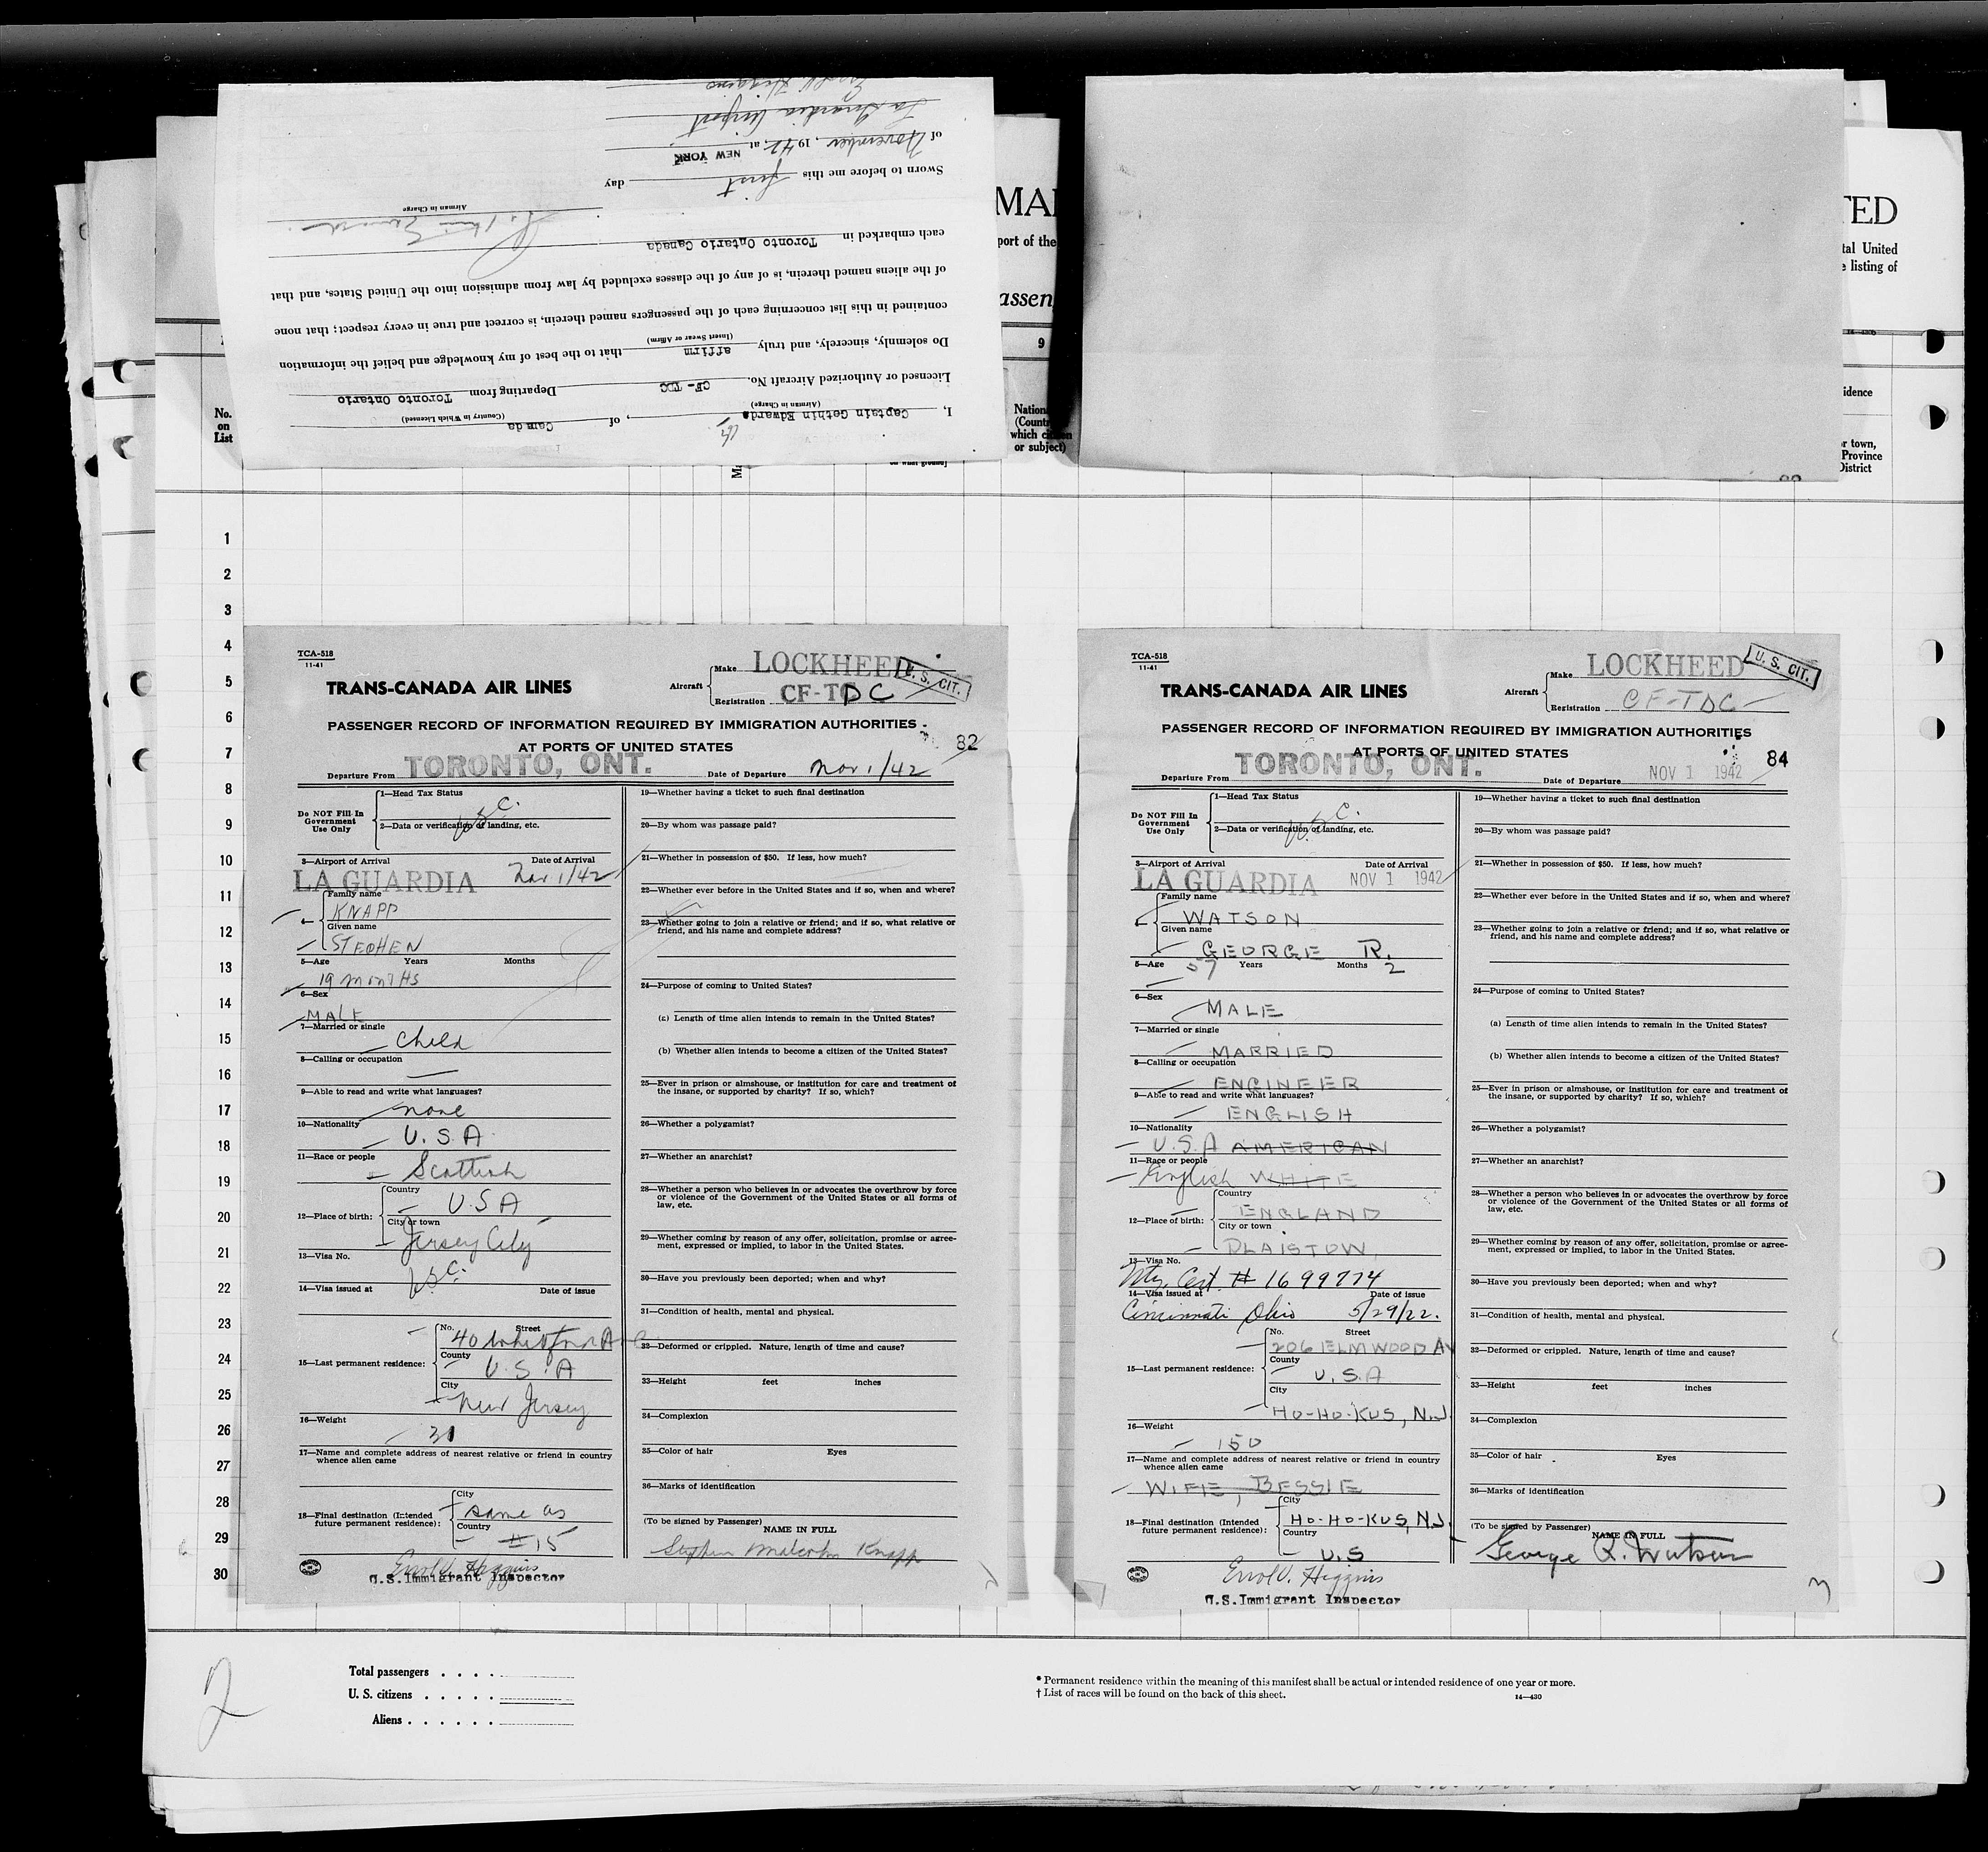 I, Captain Gethin Edwards, of Canada
(Airman in Charge) (Country in Which Licensed)
Licensed or Authorized Aircraft No. CF-TDC Departing from Toronto Ontario
Do solemnly, sincerely, and truly affirm that to the best of my knowledge and belief the information
(Insert Swear or Affirm)
contained in this list concerning each of the passengers named therein, is correct and true in every respect; that none
of the aliens named therein, is of any of the classes excluded by law from admission into the United States, and that
each embarked in Toronto Ontario Canada
Airman in Charge
Sworn to before me this first day
of November, 1942, at NEW YORK
La Guardia Airport
Errol V. Higgins
MA
port of the
assen
9
TED
tal United
listing of
14-430b
idence
r town,
Province
District
No.
on
List
Nation
(Count
which
or subject)
1
2
3
4
5
6
7
8
9
10
11
12
13
14
15
16
17
18
19
20
21
22
23
24
25
26
27
28
29
30
TCA-518
11-41
TRANS-CANADA AIR LINES
Aircraft
Make LOCKHEED
Registration CF-TDC
U. S. CIT.
PASSENGER RECORD OF INFORMATION REQUIRED BY IMMIGRATION AUTHORITIES
AT PORTS OF UNITED STATES
82
Departure From TORONTO, ONT. Date of Departure Nov 1/42
Do NOT Fill-In
Government
Use Only
1—Head Tax Status
U.S.C.
2—Data or verification of landing, etc.
3—Airport of Arrival Date of Arrival
LA GUARDIA Nov 1/42
Family name
KNAPP
Given name
STEPHEN
5—Age Years Months
19 MONTHS
6—Sex
MALE
7—Married or single
Child
8—Calling or occupation
—
9—Able to read and write what languages?
none
10—Nationality
U.S.A.
11—Race or people
Scottish
12—Place of birth:
Country
U.S.A
City or town
Jersey City
13—Visa No.
U.S.C.
14—Visa issued at Date of issue
15—Last permanent residence:
No. Street
40
County
U.S.A
City
New Jersey
16—Weight
30
17—Name and complete address of nearest relative or friend in country
whence alien came
18—Final destination (Intended
future permanent residence):
City
same as
Country
#15
Errol V. Higgins
U.S.Immigrant Inspector
19—Whether having a ticket to such final destination
20—By whom was passage paid?
21—Whether in possession of $50. If less, how much?
22—Whether ever before in the United States and if so, when and where?
23—Whether going to join a relative or friend; and if so, what relative or
friend, and his name and complete address?
24—Purpose of coming to United States?
(a) Length of time alien intends to remain in the United States?
(b) Whether alien intends to become a citizen of the United States?
25—Ever in prison or almshouse, or institution for care and treatment of
the insane, or supported by charity? If so, which?
26—Whether a polygamist?
27—Whether an anarchist?
28—Whether a person who believes in or advocates the overthrow by force
or violence of the Government of the United States or all forms of
law, etc.
29—Whether coming by reason of any offer, solicitation, promise or agree-
ment, expressed or implied, to labor in the United States.
30—Have you previously been deported; when and why?
31—Condition of health, mental and physical.
32—Deformed or crippled. Nature, length of time and cause?
33—Height feet inches
34—Complexion
35—Color of hair Eyes
36—Marks of identification
(To be signed by Passenger)
NAME IN FULL
Stephen Malcolm Knapp
TCA-518
11-41
TRANS-CANADA AIR LINES
Aircraft
Make LOCKHEED
Registration CF-TDC
U. S. CIT.
PASSENGER RECORD OF INFORMATION REQUIRED BY IMMIGRATION AUTHORITIES
AT PORTS OF UNITED STATES
84
Departure From TORONTO, ONT. Date of Departure NOV 1 1942
Do NOT Fill-In
Government
Use Only
1—Head Tax Status
U.S.C.
2—Data or verification of landing, etc.
3—Airport of Arrival Date of Arrival
LA GUARDIA NOV 1 1942
Family name
WATSON
Given name
GEORGE R.
5—Age 57 Years Months 2
6—Sex
MALE
7—Married or single
MARRIED
8—Calling or occupation
ENGINEER
9—Able to read and write what languages?
ENGLISH
10—Nationality
U.S.A AMERICAN
11—Race or people
English WHITE
12—Place of birth:
Country
ENGLAND
City or town
PLAISTOW
13—Visa No.
Ntz. Cert # 1699774
14—Visa issued at Date of issue
Cincinnati Ohio 5/29/22.
15—Last permanent residence:
No. Street
206 ELMWOOD AV
County
U.S.A
City
HO-HO-KUS, N.J.
16—Weight
150
17—Name and complete address of nearest relative or friend in country
whence alien came
WIFE, BESSIE
18—Final destination (Intended
future permanent residence):
City
HO-HO-KUS, N.J.
Country
U.S
Errol V. Higgins
U.S.Immigrant Inspector
19—Whether having a ticket to such final destination
20—By whom was passage paid?
21—Whether in possession of $50. If less, how much?
22—Whether ever before in the United States and if so, when and where?
23—Whether going to join a relative or friend; and if so, what relative or
friend, and his name and complete address?
24—Purpose of coming to United States?
(a) Length of time alien intends to remain in the United States?
(b) Whether alien intends to become a citizen of the United States?
25—Ever in prison or almshouse, or institution for care and treatment of
the insane, or supported by charity? If so, which?
26—Whether a polygamist?
27—Whether an anarchist?
28—Whether a person who believes in or advocates the overthrow by force
or violence of the Government of the United States or all forms of
law, etc.
29—Whether coming by reason of any offer, solicitation, promise or agree-
ment, expressed or implied, to labor in the United States.
30—Have you previously been deported; when and why?
31—Condition of health, mental and physical.
32—Deformed or crippled. Nature, length of time and cause?
33—Height feet inches
34—Complexion
35—Color of hair Eyes
36—Marks of identification
(To be signed by Passenger)
NAME IN FULL
George R. Watson
2
Total passengers . . . .
U. S. citizens . . . . .
Aliens . . . . . .
* Permanent residence within the meaning of this manifest shall be actual or intended residence of one year or more.
† List of races will be found on the back of this sheet.
14—430